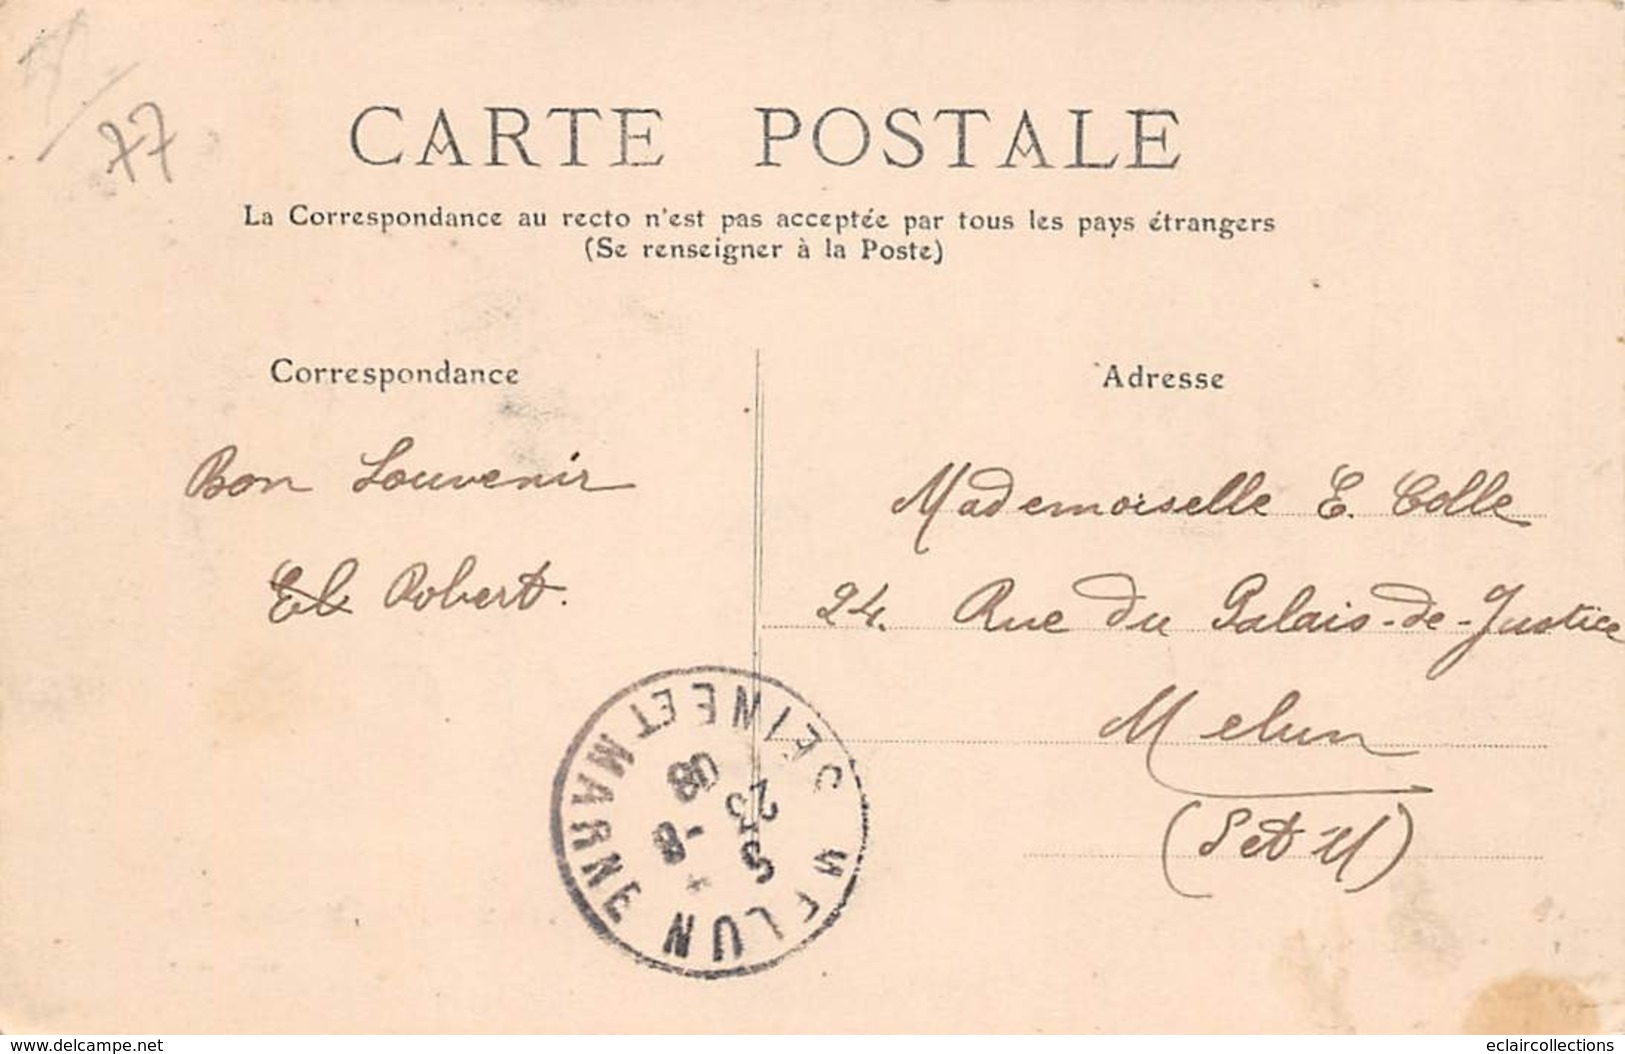 77
CARTE POSTALE
La Correspondance au recto n'est pas acceptée par tous les pays étrangers
(Se renseigner à la Poste)
Correspondance
Adresse
Bon Souvenir
Robert.
Mademoiselle E. Colle
24. Rue du Palais-de-Justice
Melun
(S et M)
MELUN SEINE ET MARNE
08
www.delcampe.net
eclaircollections